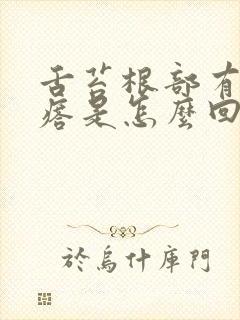 舌苔根部有
瘩是怎麼回
於烏什庫門